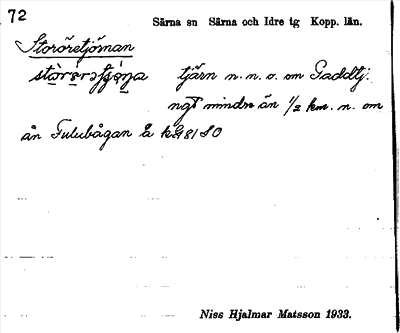 72
Särna sn Särna och Idre tg Kopp. län.
Storöretjörnan
tjärn n.n.o. om Gaddtj.
ngt mindre än 1/2 km. n. om
ån Fulubågan å kbl 81 SO
Niss Hjalmar Matsson 1933.